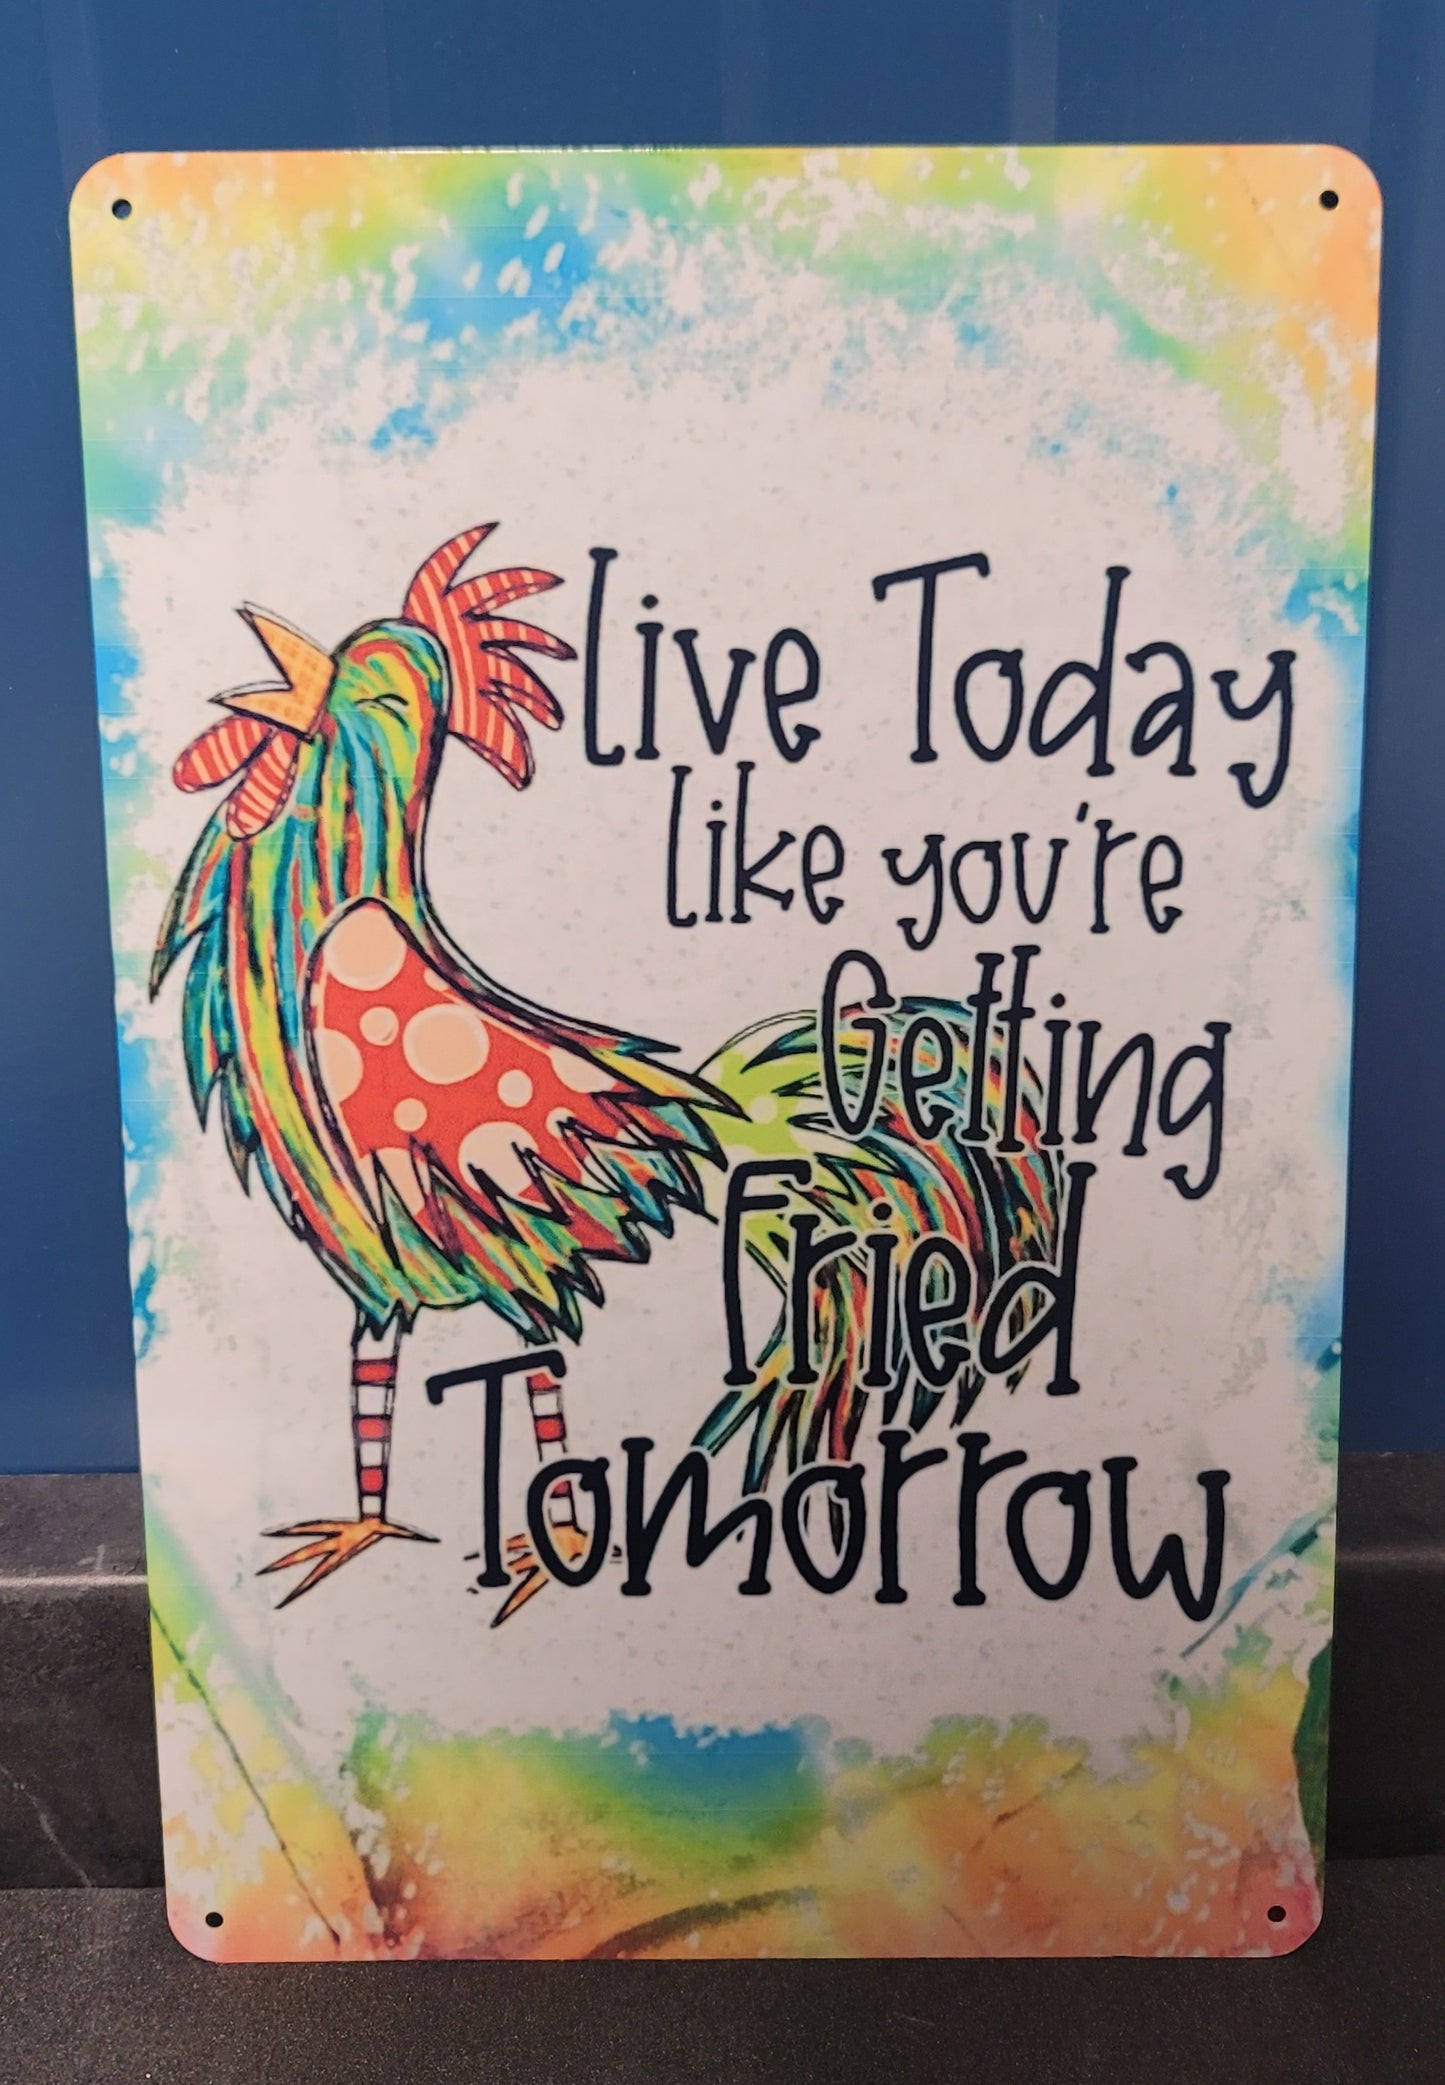 Live Today
like you're
Getting
Fried
Tomorrow